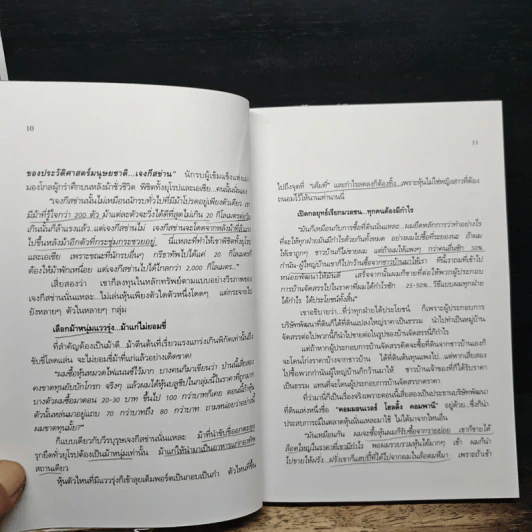 10
ของประวัติศาสตร์มนุษยชาติ...เจงกีสข่าน" นักรบผู้เข้มแข็งแห่ง
มองโกลผู้กรำศึกบนหลังม้าชั่วชีวิต พิชิตทั้งยุโรปและเอเชีย...คนนั้นนั่นเอง
"เจงกีสข่านนั้นน่ะ...ไม่เหมือนนักรบทั่วไปที่มีม้าโปรดอยู่เพียงตัวเดียว เขา
มีม้าที่รู้ใจกว่า 200 ตัว ม้าแต่ละตัวจะวิ่งได้ดีที่สุดไม่เกิน 20 กิโลเมตร
กันนั้นก็ล้าแรงแล้ว แต่เจงกีสข่านไม่ เจงกีสข่านจะโดดจากหลังม้าที่
ไปขึ้นหลังม้าอีกตัวที่กระชุ่มกระชวยอยู่ นี่แหละที่ทำให้เขาพิชิตทั้งยุโรป
และเอเชีย เพราะขณะที่นักรบอื่นๆ กรีธาทัพไปได้แค่ 20 กิโลเมตรก็
ต้องให้ม้าพักเหนื่อย แต่เจงกีสข่านไปได้ไกลกว่า 2,000 กิโลเมตร.."
เสี่ยสองว่า เขาก็ลงทุนในหลักทรัพย์ตามแบบอย่างวีรภาพของ
เจงกีสข่านนั่นแหละ...ไม่เล่นหุ้นเพียงตัวใดตัวหนึ่งโดดๆ แต่กระจายไป
ยังหลายๆ ตัวในหลายๆ กลุ่ม
เลือกม้าหนุ่มแววรุ่ง...ม้าแก่ไม่ยอมขี่
ที่สำคัญต้องเป็นม้าดี... ม้าตีนต้นที่เรี่ยวแรงแกร่งเกินพิกัดเท่านั้นถึง
ขับขี่โลดแล่น จะไม่ยอมขี่ม้าที่แก่แล้วอย่างเด็ดขาด!
"ผมซื้อหุ้นหมวดไฟแนนซ์ไว้มาก บางคนก็มาเขียนว่า ป่านนี้เสี่ยสอง
คงขาดทุนยับยักโกรก จริงๆ แล้วผมได้หุ้นบลูชิปในกลุ่มนี้ในราคาที่ถูกมาก
บางตัวผมซื้อมาตอน 20-30 บาท ขึ้นไป 100 กว่าบาทก็โดย ตอนนี้ถ้าหุ้น
ตัวนั้นหล่นมาอยู่แถบ 70 กว่าบาทถึง 80 กว่าบาท ถามหน่อยว่าอย่างนี้
ผมขาดทุนมั้ย?"
ก็แบบเดียวกับวีรบุรุษเจงกีสข่านนั่นแหละ ม้าที่นำขับขี่ออกตะลุย
รุกยึดทั่วยุโรปต้องเป็นม้าหนุ่มเท่านั้น ม้าแก่ให้นำมาเป็นอาหารแก่กองทัพ
สถานเดียว
หุ้นตัวไหนที่มีแววรุ่งก็เข้าลุยเต็มพอร์ตเป็นกอบเป็นกำ ตัวไหนที่ขึ้น
11
ไปถึงจุดที่ "เต็มที่" และกำไรลดลงก็ต้องทิ้ง...เพราะหุ้นไม่ใช่หญิงสาวที่ต้อง
ถนอมไว้ให้นานเท่านานนี่
เปิดกลยุทธ์เรียกมวลชน...ทุกคนต้องมีกำไร
"มันก็เหมือนกับการซื้อที่ดินนั่นแหละ...ผมยึดหลักการว่าทำอย่างไร
ที่จะให้ทุกฝ่ายมันมีกำไรด้วยกันทั้งหมด อย่างผมไปซื้อที่ของนะ ถ้าผม
ให้เขาถูกๆ ชาวบ้านก็ไม่ขายผม แต่ถ้าผมให้เขาแพงๆ กว่าคนอื่นซัก 50%
กำนัน-ผู้ใหญ่บ้านเขาก็ไปกว้านซื้อจากชาวบ้านมาให้เรา ที่นี้เราถมที่เข้าไป
หน่อยพัฒนาไปให้มันดี เสร็จจากนั้นผมก็ขายที่ต่อให้พวกผู้ประกอบ
การบ้านจัดสรรไปในราคาที่ผมได้กำไรซัก 25-50%..วิธีแบบผมทุกฝ่าย
ได้กำไร ได้ประโยชน์ทั้งสิ้น"
เขาอธิบายว่า...ที่ว่าทุกฝ่ายได้ประโยชน์ ก็เพราะผู้ประกอบการ
บริษัทพัฒนาที่ดินก็ได้ที่ดินแปลงใหญ่ราคาเป็นธรรม นำไปทำเป็นหมู่บ้าน
จัดสรรต่อไปพวกนี้ก็นำไปขายต่อในรูปของบ้านจัดสรรที่มีกำไร
แต่ถ้าหากผู้ประกอบการบ้านจัดสรรคิดจะซื้อที่ดินจากชาวบ้านเองก็
จะโดนโก่งราคาบ้างจากชาวบ้าน ได้ที่ดินต้นทุนแพงไป...แต่หากเสี่ยสอง
ไปซื้อพวกกำนันผู้ใหญ่บ้านก็กว้านมาให้ ชาวบ้านเจ้าของที่ก็ได้รับราคา
เป็นธรรม แทนที่จะโดนผู้ประกอบการบ้านจัดสรรกดราคา
ที่ว่ามานี้ก็เป็นเรื่องจริงเพราะตอนนี้เสี่ยสองเป็นประธานบริษัทพัฒนา
ที่ดินแห่งหนึ่งชื่อ "คอมมอนเวลธ์ โฮลดิ้ง คอมพานี" อยู่ด้วย...ซึ่งก็นำ
ประสบการณ์ในตลาดหุ้นนั่นแหละมาใช้ ไม่ได้มาจากไหนอื่น
"มันเหมือนกัน ผมจะซื้อหุ้นผมก็รับซื้อจากรายย่อย เขาก็ขายได้
ล็อตใหญ่ในราคาที่เขามีกำไร พอผมรวบรวมหุ้นได้มากๆ เข้า ผมก็นำ
ไปขายให้ฝรั่ง...ฝรั่งเขาก็แฮปปี้ที่ได้ไปจากผมในล็อตผมที่มา เพราะถ้าเข้า